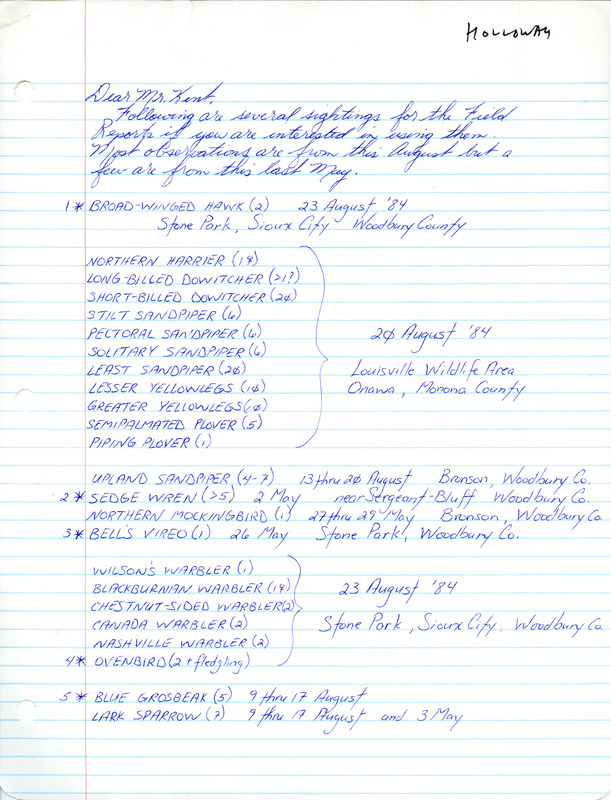 HOLLOWAY
Dear Mr. Kent,
Following are several sightings for the Field
Reports if you are interested in using them.
Most observations are from this August but a
few are from this last May.
1 * BROAD-WINGED HAWK (2) 23 August '84
Stone Park, Sioux City Woodbury County
NORTHERN HARRIER (1♀)
LONG-BILLED DOWITCHER (>1?)
SHORT-BILLED DOWITCHER (2Ø)
STILT SANDPIPER (6)
PECTORAL SANDPIPER (6)
SOLITARY SANDPIPER (6)
LEAST SANDPIPER (2Ø)
LESSER YELLOWLEGS (1Ø)
GREATER YELLOWLEGS (1Ø)
SEMIPALMATED PLOVER (5)
PIPING PLOVER (1)
2Ø August '84
Louisville Wildlife Area
Onawa, Monona County
UPLAND SANDPIPER (4-7) 13 thru 2Ø August Bronson, Woodbury Co.
2 * SEDGE WREN (>5) 2 May near Sergeant-Bluff Woodbury Co.
NORTHERN MOCKINGBIRD (1) 27 thru 29 May Bronson, Woodbury Co.
3 * BELL'S VIREO (1) 26 May Stone Park, Woodbury Co.
WILSON'S WARBLER (1)
BLACKBURNIAN WARBLER (1♀)
CHESTNUT-SIDED WARBLER (2)
CANADA WARBLER (2)
NASHVILLE WARBLER (2)
4 * OVENBIRD (2 + fledgling)
23 August '84
Stone Park, Sioux City, Woodbury Co.
5 * BLUE GROSBEAK (5) 9 thru 17 August
LARK SPARROW (7) 9 thru 17 August and 3 May